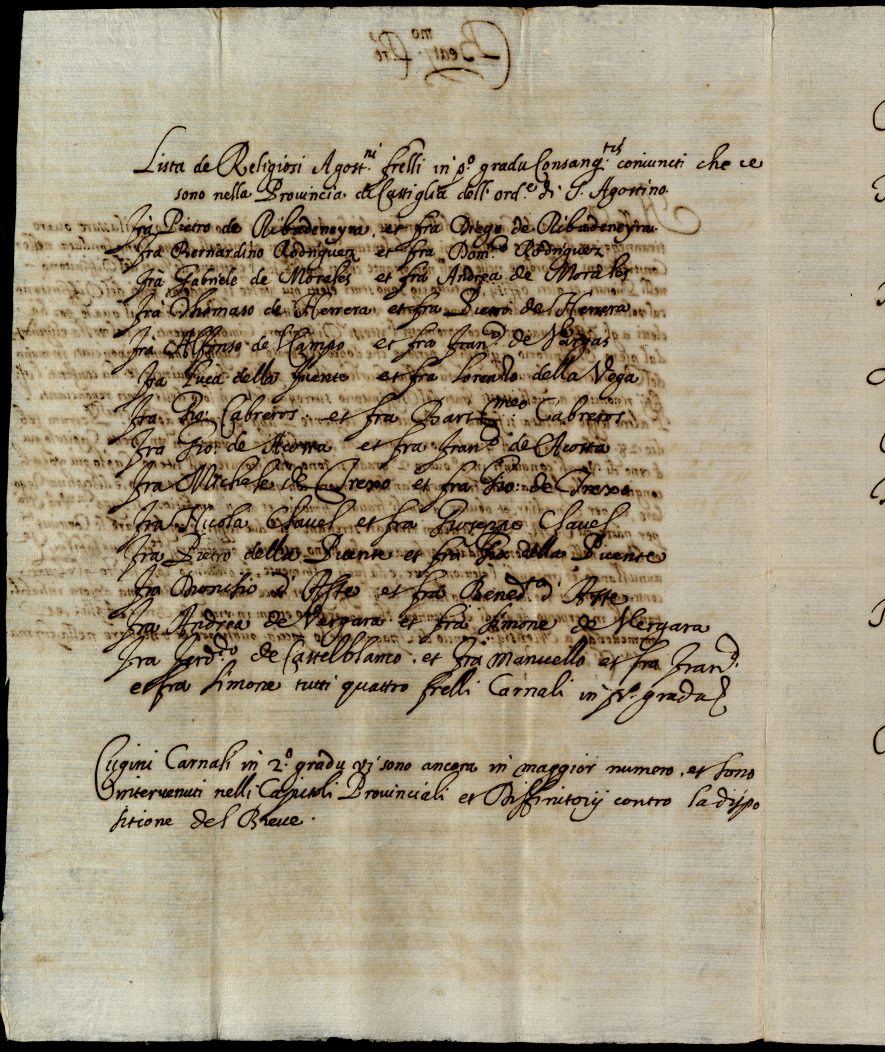 Lista de Religiosi Agost.ni frelli in p.o gradu Consang.tis coniuncti che ce
sono nella Provincia di Castiglia dell' ord.e di S. Agostino.
fra Pietro de Ribadeneyra, et fra Diego de Ribadeneyra.
fra Bernardino Rodriguez et fra Dom.co Rodriguez
fra Gabriele de Morales et fra Andrea de Morales
fra Thomaso de Herrera et fra Pietro de Herrera
fra Alfonso del Campo et fra Fran.co de Vargas
fra Luca della fuente et fra Lorenzo della Vega
fra Gio: Cabreros et fra Bartolmeo Cabreros
fra Gio: de Acosta et fra Fran.co de Acosta
fra Michele de Trexo et fra Gio: de Trexo
fra Nicola Clavel et fra Giuseppe Clavel
fra Pietro della Puente et fra Gio: della Puente
fra Dionisio d' Aste et fra Bened.to d' Aste
fra Andrea de Vergara et fra Simone de Vergara
fra Ferd.do de Castelblanco, et fra Manuello et fra Fran.co
et fra Simone tutti quattro frelli Carnali in pr.o gradu
Cugini Carnali in 2.o gradu vi sono ancora in maggior numero, et sono
intervenuti nelli Capitoli Provinciali et Diffinitorij contro la dispo
sitione del Breve.